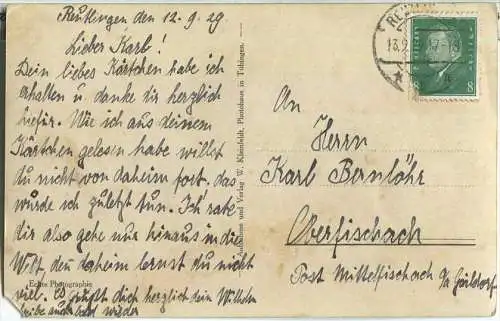 Reutlingen den 12.9.29
Lieber Karl!
Dein liebes Kärtchen habe ich
erhalten u. danke dir herzlich
hiefür. Wie ich aus deinem
Kärtchen gelesen habe willst
du nicht von daheim fort. das
würde ich zuletzt tun. Ich rate
dir also gehe nur hinaus in die
Welt, den daheim lernst du nicht
viel. Es grüßt dich herzlich dein Wilhelm
auch bald wieder
Echte Photographie
und Verlag W. Kleinfeldt, Photohaus in Tübingen.
13.9. 17-18
8 8
An
Herrn
Karl Bernlöhr
Oberfischach
Post Mittelfischach o/a Gaildorf.